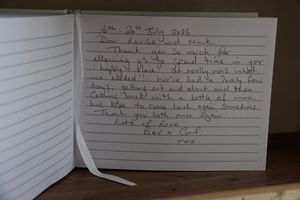 16th - 20th July 2026
Dear Louise and Mark
Thank you so much for
allowing us to spend time in your
'happy place'. It really was what
we needed! We've had a lovely few
days, getting out and about and then
coming back with a bottle of wine,
we hope to come back again sometime
Thank you both once again.
Lots of Love
Bev &
xxx